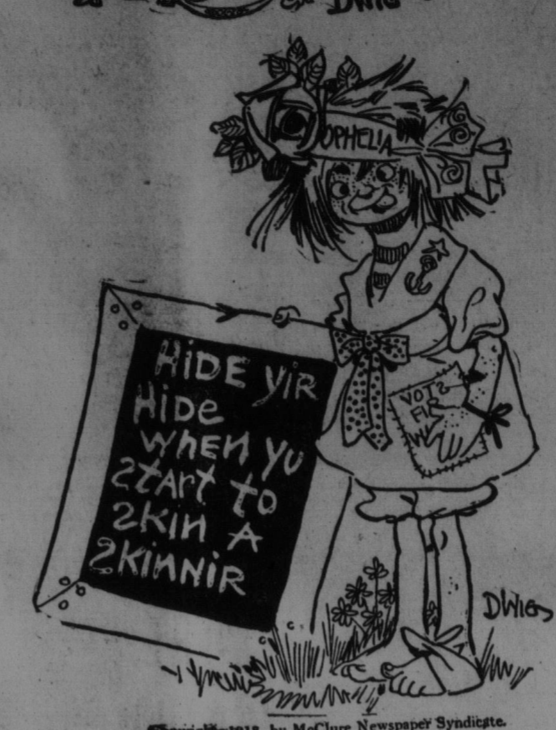 DWIG
OPHELIA
HiDE YiR
HiDe
wheN YU
StArt to
SKiN A
SKiNNiR
VOTS
FIR
W
DWIG
1912, by McClure Newspaper Syndicate.